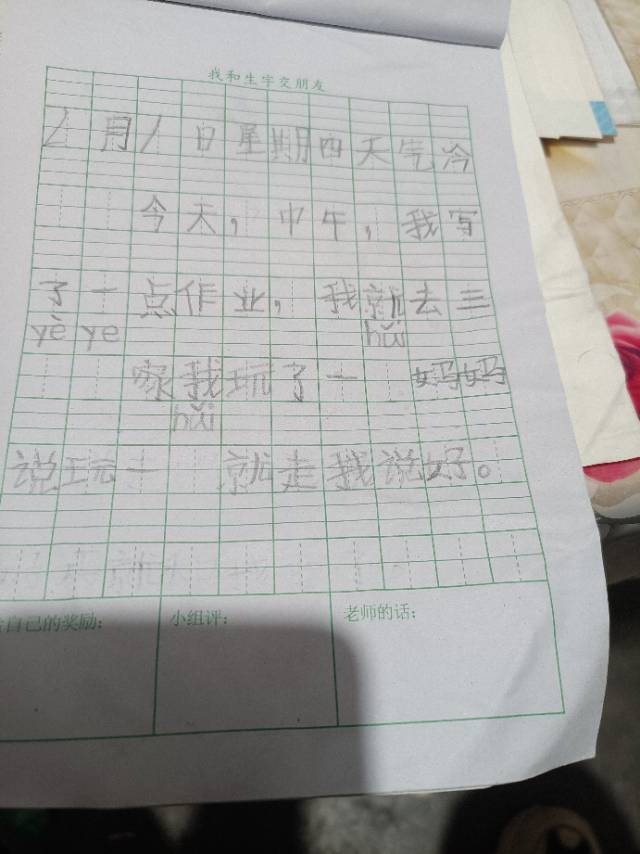 我和生字交朋友
1月1日星期四天气冷
今天，中午，我写
了一点作业，我就去三
yě ye huǐ
家我玩了一 妈妈
huǐ
说玩一 就走我说好。
自己的奖励：
小组评：
老师的话：